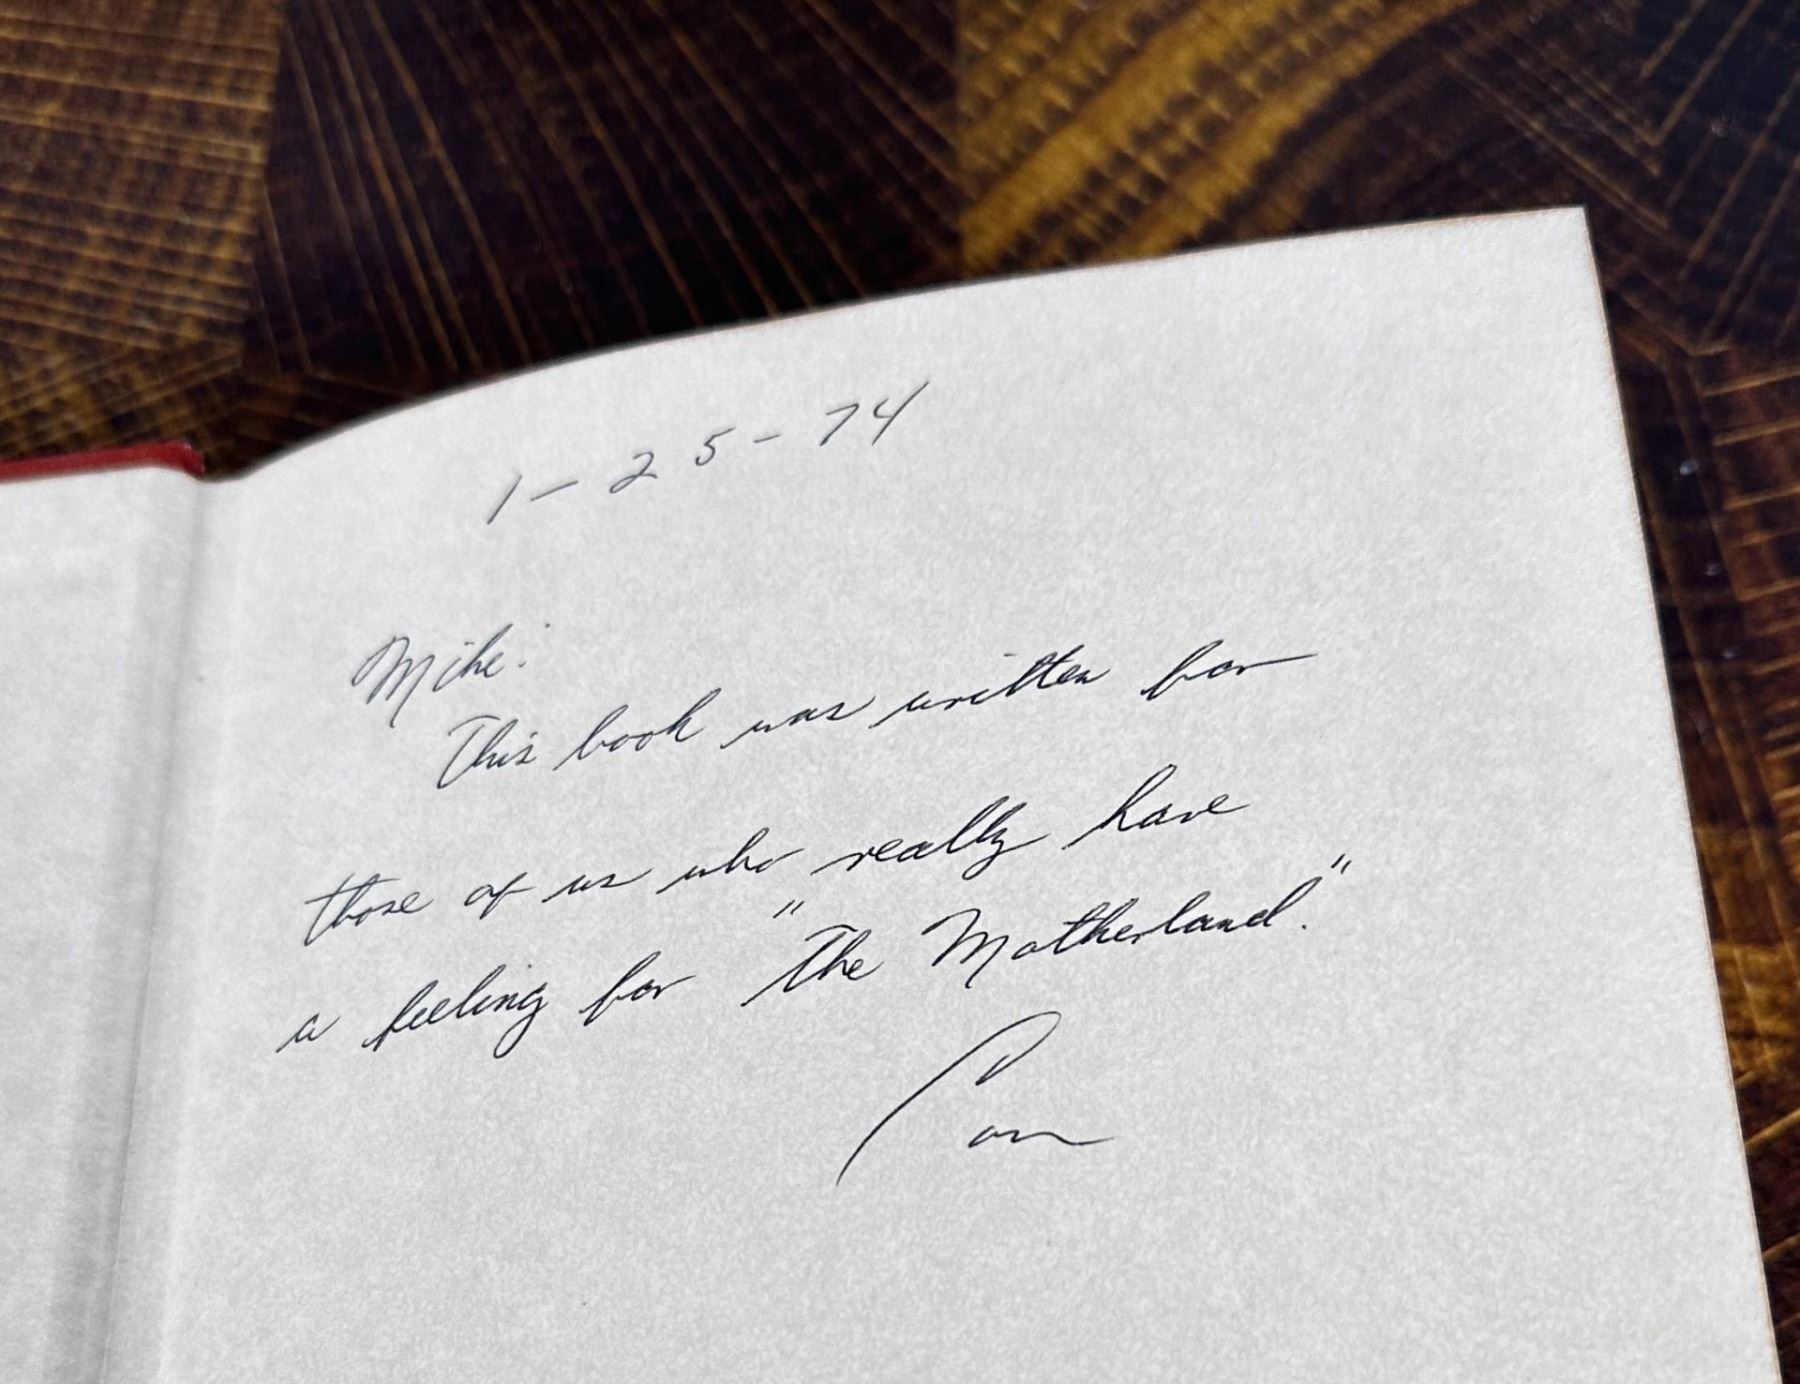 1-25-74
Mike:
This book was written for
those of us who really have
a feeling for "The Motherland."